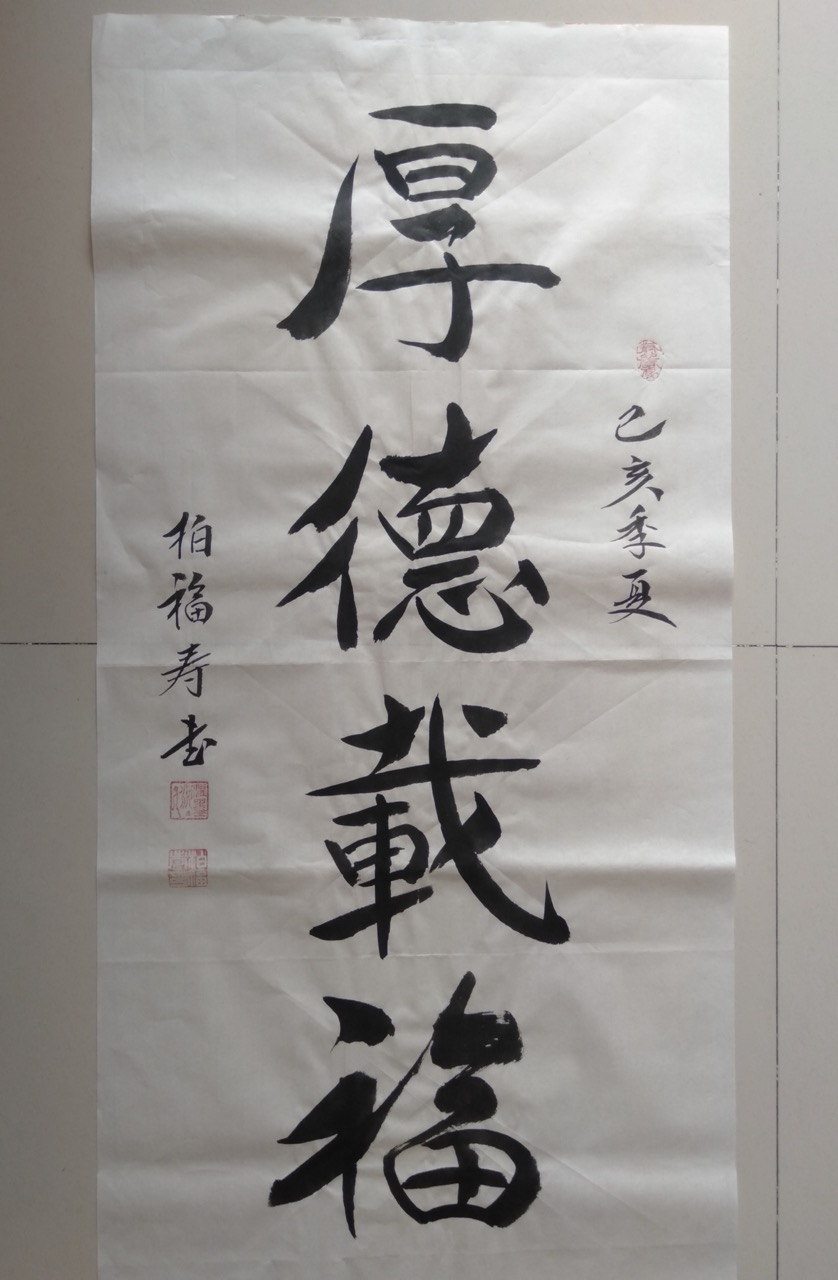 厚德載福
己亥季夏
柏福寿书